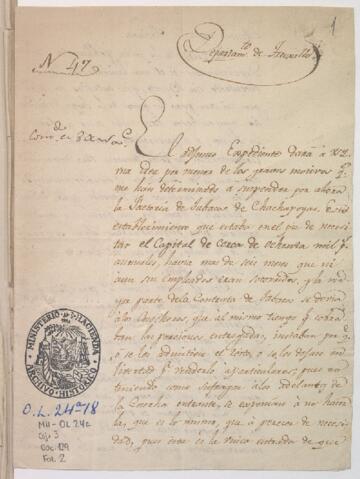 1
Departam.to de Truxillo
N. 47
El adjunto Expediente dará à V.E.
una idea por menor de los graves motivos q.e
me han determinado à suspender por ahora
la Factoria de Tabacos de Chachapoyas. Este
establecimiento, que estaba en el pie de necesi-
tar el Capital de cerca de ochenta mil p.s
anuales, hacia mas de seis meses que ni
aun sus Empleados eran socorridos, y la ma-
yor parte de la Contenta de Tabacos se debia
à los Cosecheros, que al mismo tiempo q.e cobra-
ban las porciones entregadas, instaban por q.e
ò se les admitiese el resto, ò se los dexase en
libertad p.a venderlo à particulares; pues no
teniendo como sufragar à los adelantos de
la Cosecha entrante, se exponian à no hacer-
la, que es lo mismo, que à perecer de necesi-
dad, pues esta es la unica entrada de que
MINISTERIO DE HACIENDA
ARCHIVO HISTORICO
O.L. 24ª-18
MH-OL 24a
Caj. 3
Doc. 129
Fol. 2